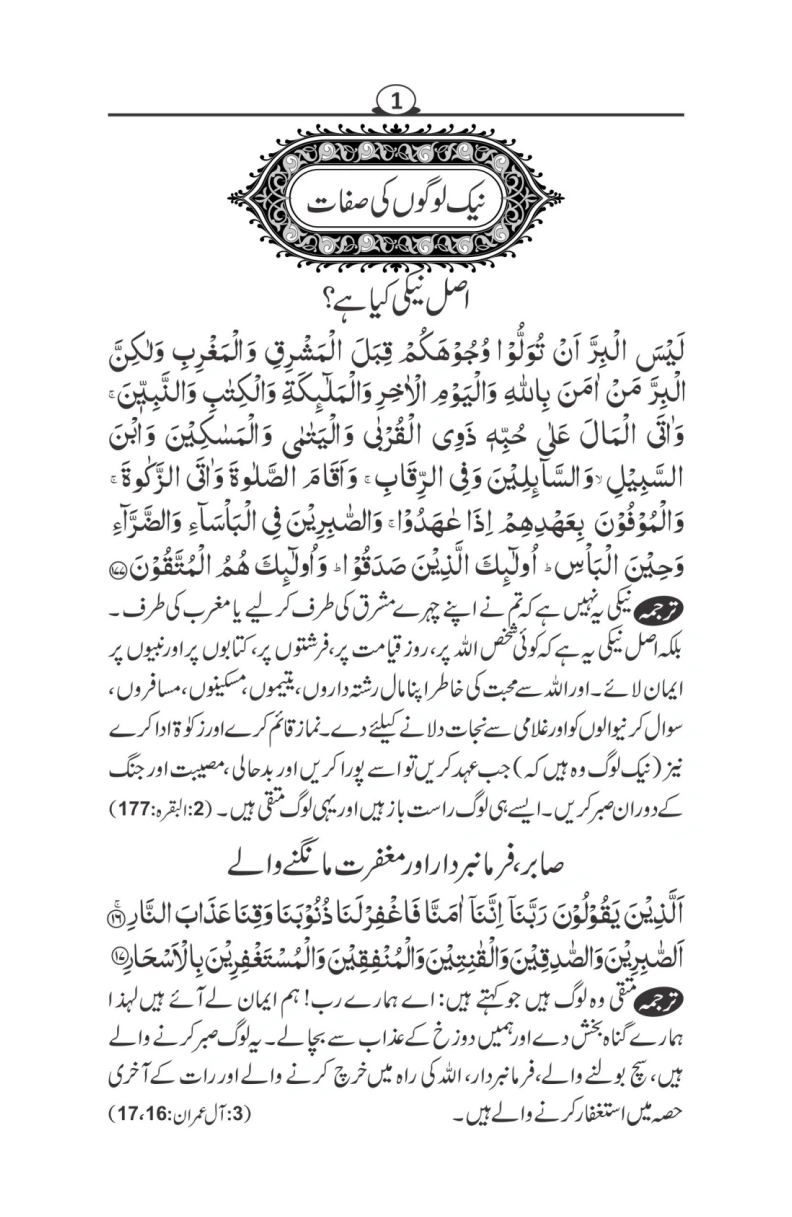 1
نیک لوگوں کی صفات
اصل نیکی کیا ہے؟
لَیْسَ الْبِرَّ اَنْ تُوَلُّوْا وُجُوْهَکُمْ قِبَلَ الْمَشْرِقِ وَالْمَغْرِبِ وَلٰکِنَّ
الْبِرَّ مَنْ اٰمَنَ بِاللهِ وَالْیَوْمِ الْاٰخِرِ وَالْمَلٰٓئِکَةِ وَالْکِتٰبِ وَالنَّبِیّٖنَ ۚ
وَاٰتَی الْمَالَ عَلٰی حُبِّهٖ ذَوِی الْقُرْبٰی وَالْیَتٰمٰی وَالْمَسٰکِیْنَ وَابْنَ
السَّبِیْلِ ۙ وَالسَّآئِلِیْنَ وَفِی الرِّقَابِ ۚ وَاَقَامَ الصَّلٰوةَ وَاٰتَی الزَّکٰوةَ ۚ
وَالْمُوْفُوْنَ بِعَهْدِهِمْ اِذَا عٰهَدُوْا ۚ وَالصّٰبِرِیْنَ فِی الْبَاْسَآءِ وَالضَّرَّآءِ
وَحِیْنَ الْبَاْسِ ؕ اُولٰٓئِکَ الَّذِیْنَ صَدَقُوْا ؕ وَاُولٰٓئِکَ هُمُ الْمُتَّقُوْنَ ۝۱۷۷
ترجمہ نیکی یہ نہیں ہے کہ تم نے اپنے چہرے مشرق کی طرف کر لیے یا مغرب کی طرف ۔
بلکہ اصل نیکی یہ ہے کہ کوئی شخص اللہ پر، روز قیامت پر، فرشتوں پر، کتابوں پر اور نبیوں پر
ایمان لائے ۔ اور اللہ سے محبت کی خاطر اپنا مال رشتہ داروں، یتیموں، مسکینوں، مسافروں،
سوال کرنیوالوں کو اور غلامی سے نجات دلانے کیلئے دے ۔ نماز قائم کرے اور زکوٰۃ ادا کرے
نیز (نیک لوگ وہ ہیں کہ) جب عہد کریں تو اسے پورا کریں اور بدحالی، مصیبت اور جنگ
کے دوران صبر کریں ۔ ایسے ہی لوگ راست باز ہیں اور یہی لوگ متقی ہیں ۔ (2:البقرہ:177)
صابر، فرمانبردار اور مغفرت مانگنے والے
اَلَّذِیْنَ یَقُوْلُوْنَ رَبَّنَاۤ اِنَّنَاۤ اٰمَنَّا فَاغْفِرْلَنَا ذُنُوْبَنَا وَقِنَا عَذَابَ النَّارِ ۝۱۶ ۚ
اَلصّٰبِرِیْنَ وَالصّٰدِقِیْنَ وَالْقٰنِتِیْنَ وَالْمُنْفِقِیْنَ وَالْمُسْتَغْفِرِیْنَ بِالْاَسْحَارِ ۝۱۷
ترجمہ متقی وہ لوگ ہیں جو کہتے ہیں: اے ہمارے رب! ہم ایمان لے آئے ہیں لہٰذا
ہمارے گناہ بخش دے اور ہمیں دوزخ کے عذاب سے بچالے ۔ یہ لوگ صبر کرنے والے
ہیں، سچ بولنے والے، فرمانبردار، اللہ کی راہ میں خرچ کرنے والے اور رات کے آخری
حصہ میں استغفار کرنے والے ہیں ۔ (3:آل عمران:17،16)